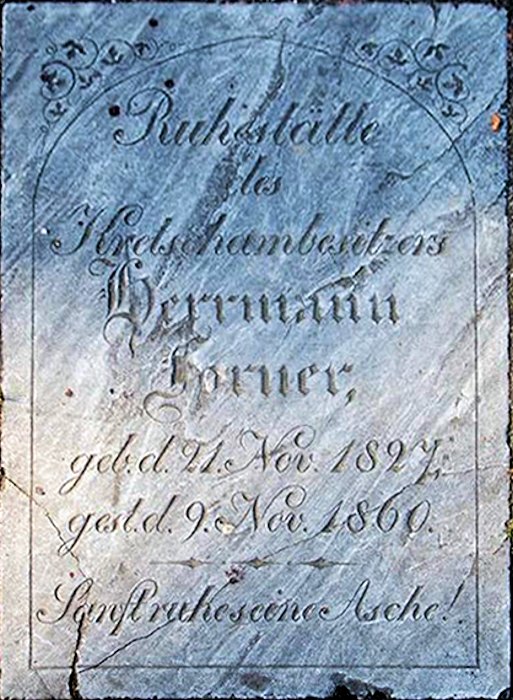 Ruhestätte
des
Kretschambesitzers
Herrmann
Forner,
geb. d. 21. Nov. 1827,
gest. d. 9. Nov. 1860.
Sanft ruhe seine Asche!